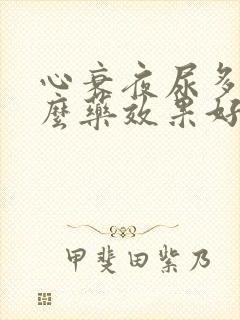 心衰夜尿多
麽藥效果好
甲斐田紫乃